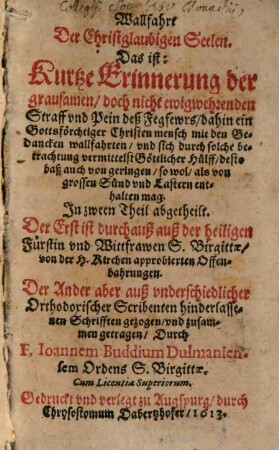 Collegij Societatis Monachij
Wallfahrt
Der Christglaubigen Seelen.
Das ist:
Kurtze Erinnerung der
grausamen / doch nicht ewigwehrenden
Straff vnd Pein deß Fegfewrs / dahin ein
Gottsförchtiger Christen mensch mit den Ge-
dancken wallfahrten / vnd sich durch solche be-
trachtung vermittelst Göttlicher Hülff / desto
baß auch von geringen / so wol / als von
grossen Sünd vnd Lastern ent-
halten mag.
In zween Theil abgetheilt.
Der Erst ist durchauß auß der heiligen
Fürstin vnd Wittfrawen S. Birgittæ /
von der H. Kirchen approbierten Offen-
bahrungen.
Der Ander aber auß vnderschiedlicher
Orthodorischer Scribenten hinderlasse-
nen Schrifften gezogen / vnd zusam-
men getragen / Durch
F. Ioannem Buddium Dulmanien-
sem Ordens S. Birgittæ.
Cum Licentia Superiorum.
Gedruckt vnd verlegt zu Augspurg / durch
Chrysostomum Dabertzhofer / 1613.